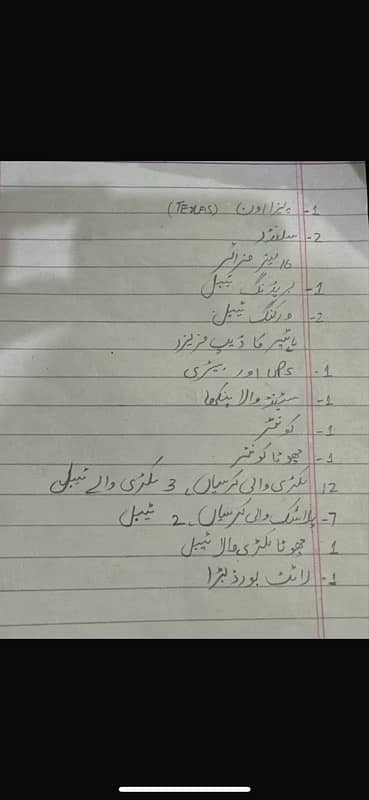 1- پیزا اون (TEXAS)
2- سلنڈر
16 لیٹر فرائر
1- بریڈنگ ٹیبل
2- ورکنگ ٹیبل
ہائیر کا ڈیپ فریزر
1- UPS اور بیٹری
1- سٹینڈ والا پنکھا
1- کونٹر
1- چھوٹا کونٹر
12 لکڑی والی کرسیاں، 3 لکڑی والے ٹیبل
7- پلاسٹک والی کرسیاں، 2 ٹیبل
1 چھوٹا لکڑی والا ٹیبل
1- لائٹ بورڈ بڑا